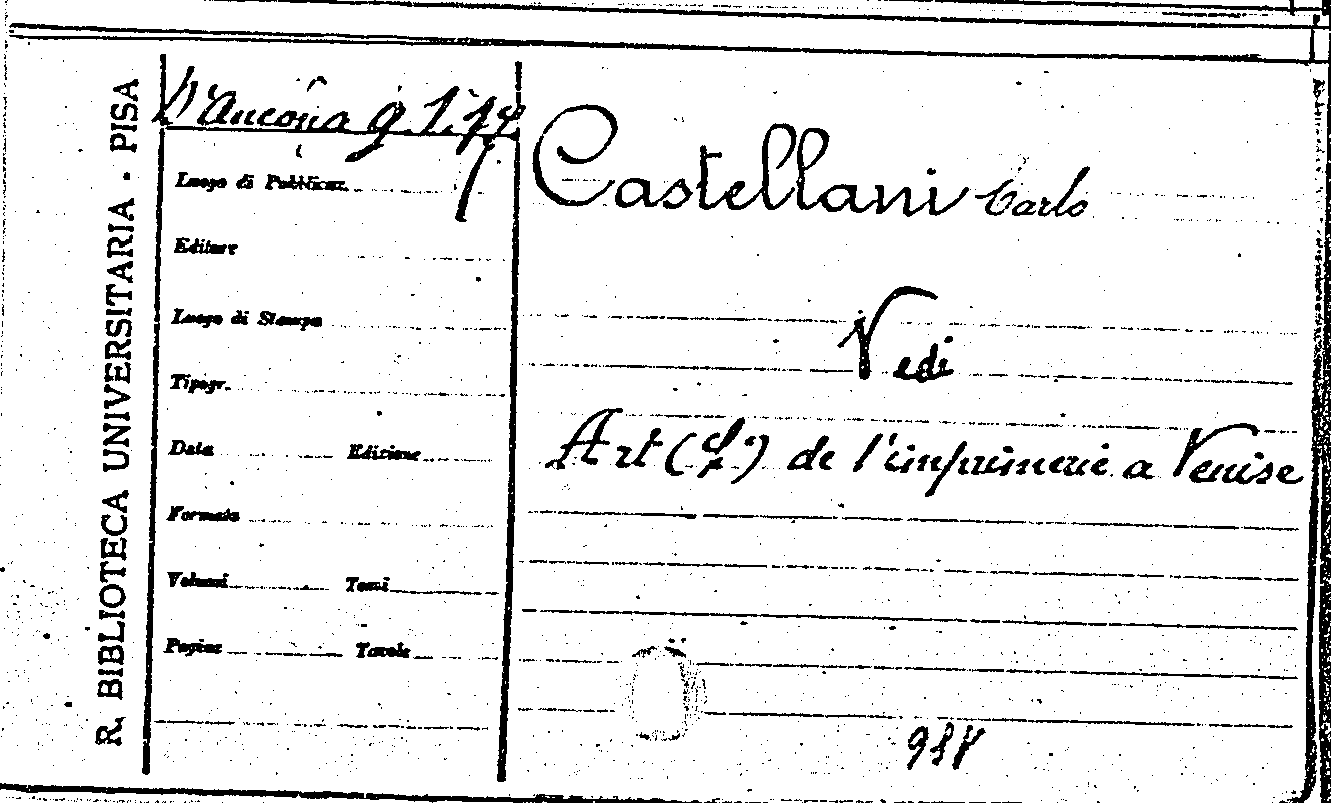 R. BIBLIOTECA UNIVERSITARIA - PISA
D'Ancona 9. 1. 14
Luogo di Pubblicaz.
Editore
Luogo di Stampa
Tipogr.
Data Edizione
Formato
Volumi Tomi
Pagine Tavole
Castellani Carlo
Vedi
Art (L') de l'imprimerie a Venise